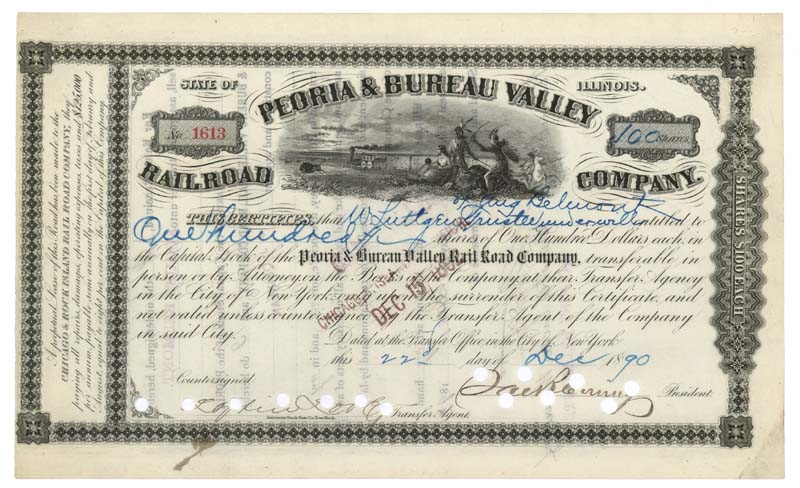 STATE OF ILLINOIS.
PEORIA & BUREAU VALLEY
No. 1613
100 Shares.
RAILROAD COMPANY.
of Aug Belmont
THIS CERTIFIES, that W Luttgen Trustee under will entitled to
One hundred shares of One Hundred Dollars each, in
the Capital Stock of the Peoria & Bureau Valley Rail Road Company, transferable in
person or by Attorney in the Books of the Company at their Transfer Agency
in the City of New York, only upon the surrender of this Certificate, and
not valid unless countersigned by the Transfer Agent of the Company
in said City.
Dated at the Transfer Office in the City of New York
this 22d day of Dec 1890
Countersigned
President.
Transfer Agent.
American Bank Note Co. New York.
DEC 15
SHARES $100 EACH
A perpetual Lease of this Road has been made to the
CHICAGO & ROCK ISLAND RAIL ROAD COMPANY, they
paying all repairs, damages, operating expenses, taxes and $125,000
per annum, payable semi-annually in the first day of February and
August equal to eight per cent on the Capital of this Company.